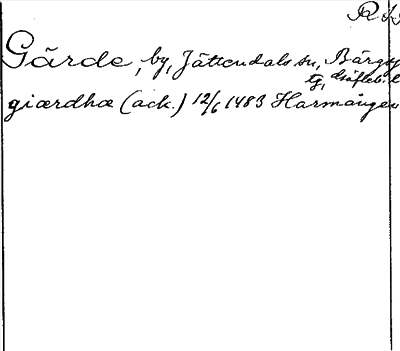 Gärde, by, Jättendals sn, Bärgsj
tg, Gäfleb. l
giærdhæ (ack.) 12/6 1483 Harmånger